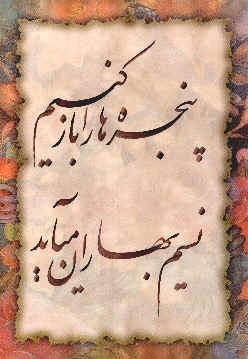 پنجره ها را باز کنیم
نسیم بهاران میآید